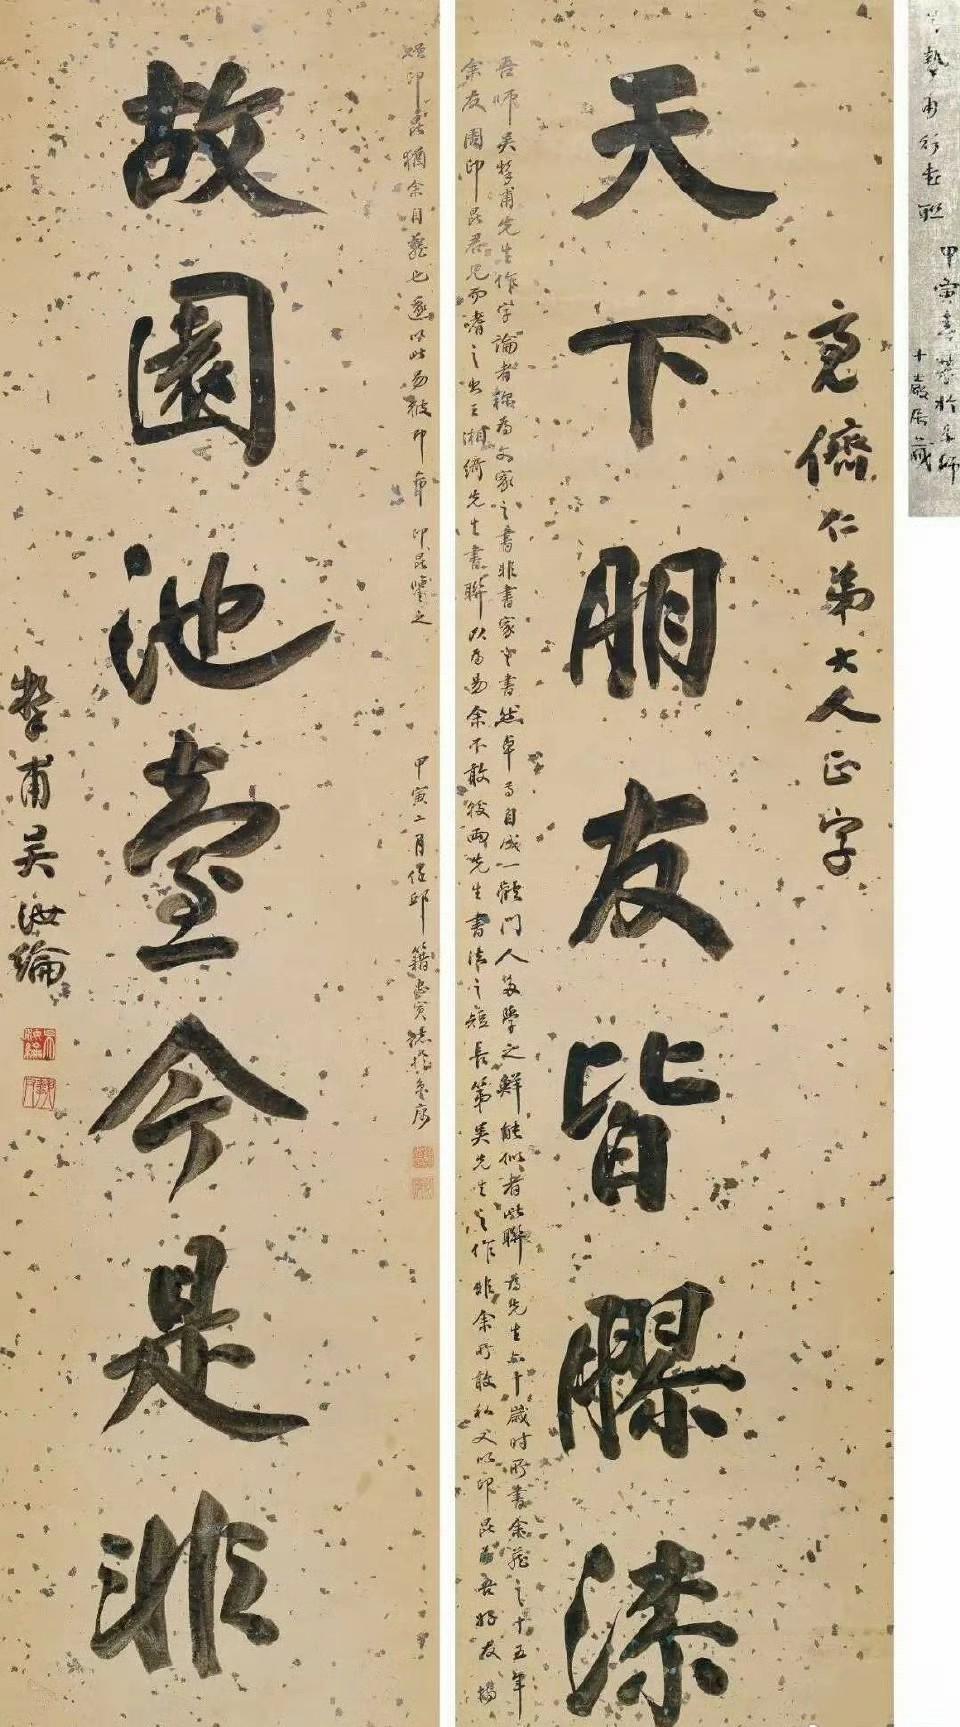 天下朋友皆膠漆
亮儕仁弟大人正字
吾師吳摯甫先生作字論者稱為文家之書非書家之書然卓爾自成一體門人多學之鮮能似者此聯為先生六十歲時所書余藏之十五年
余友周印昆君見而嗜之出王湘綺先生書聯以為易余不敢較兩先生書法之短長第吳先生之作非余所敢私又以印昆為吾好友
故園池臺今是非
印昆猶余自藏也遂以此易彼印章印昆鑒之
甲寅二月
摯甫吳汝綸
摯甫行書聯
甲寅春 於京師
十嚴居藏